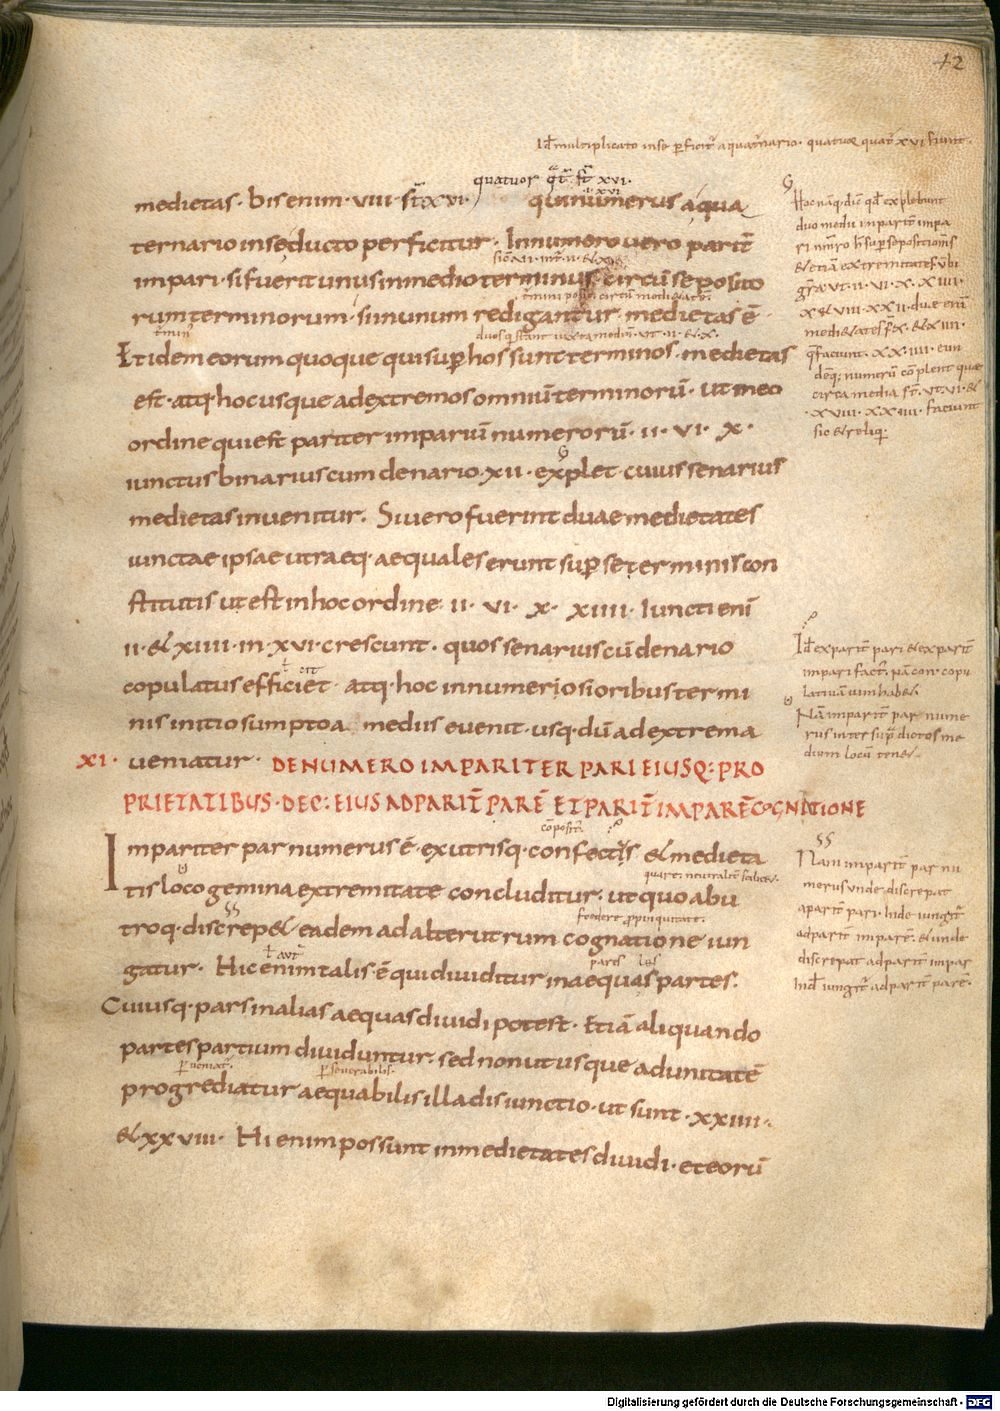 42
Id multiplicato in se perficit a quaternario · quatuor quat XVI fiunt ·
quatuor qt ft XVI ·
medietas · bis enim · VIII · st̄ · XVI · qui numerus a qua
ternario in se ducto perficitur · In numero vero parit̄
impari · si fuerit unus in medio terminus · circū se posito
rum terminorum · si in unum redigantur · medietas ē ·
Et idem eorum quoque qui sup hos sunt terminos · medietas
est · atq hoc usque ad extremos omniū terminorū · ut in eo
ordine qui est pariter impariū numerorū · II · VI · X ·
iunctus binarius cum denario · XII · explet · cuius senarius
medietas invenitur · Si vero fuerint duae medietates
iunctae ipsae utraeq · aequales erunt sup se terminis con
stitutis ut est in hoc ordine · II · VI · X · XIIII · Iuncti enī
II · et XIIII · in XVI · crescunt · quos senarius cū denario
copulatus efficiet · atq · hoc in numeriosioribus termi
nis initio sumpto a medus evenit · usq · dū ad extrema
XI · veniatur · DE NUMERO IMPARITER PARI EIUSQ : PRO
PRIETATIBUS · DEC : EIUS AD PARIT̄ PARĒ ET PARIT̄ IMPARĒ COGNATIONE
Impariter par numerus ē · ex utrisq · confectis et medieta
tis loco gemina extremitate concluditur · ut quo ab u
troq · discrepet eadem ad alterutrum cognatione iun
gatur · Hic enim talis · ē qui dividitur in aequas partes ·
Cuiusq · pars in alias aequas dividi potest · Etiā aliquando
partes partium dividuntur · sed non ut usque ad unitatē
progrediatur aequabilis illa disiunctio · ut sunt · XXIIII ·
et XXVIII · Hi enim possunt in medietates dividi · et eorū
Hoc nāq · dic̄ qd explebunt
duo medii imparit̄ impa
et etiā extremitates · ubi
grā · ut · II · VI · X · XIIII ·
medietates
circa media
· XVIII · XXIIII · faciunt
sic et reliq̄ ·
Id ex parit̄ pari et ex parit̄
impari fact · nā con · copu
lativam vim habet ·
Nā imparit̄ par nume
rus inter sup dictos me
dium locū tenet ·
Nam imparit̄ par nu
merus unde · discrepat
a parit̄ pari · Inde iungit
ad parit̄ imparē · et unde
discrepat ad parit̄ impar
Ind iungit ad parit̄ parē ·
Digitalisierung gefördert durch die Deutsche Forschungsgemeinschaft - DFG